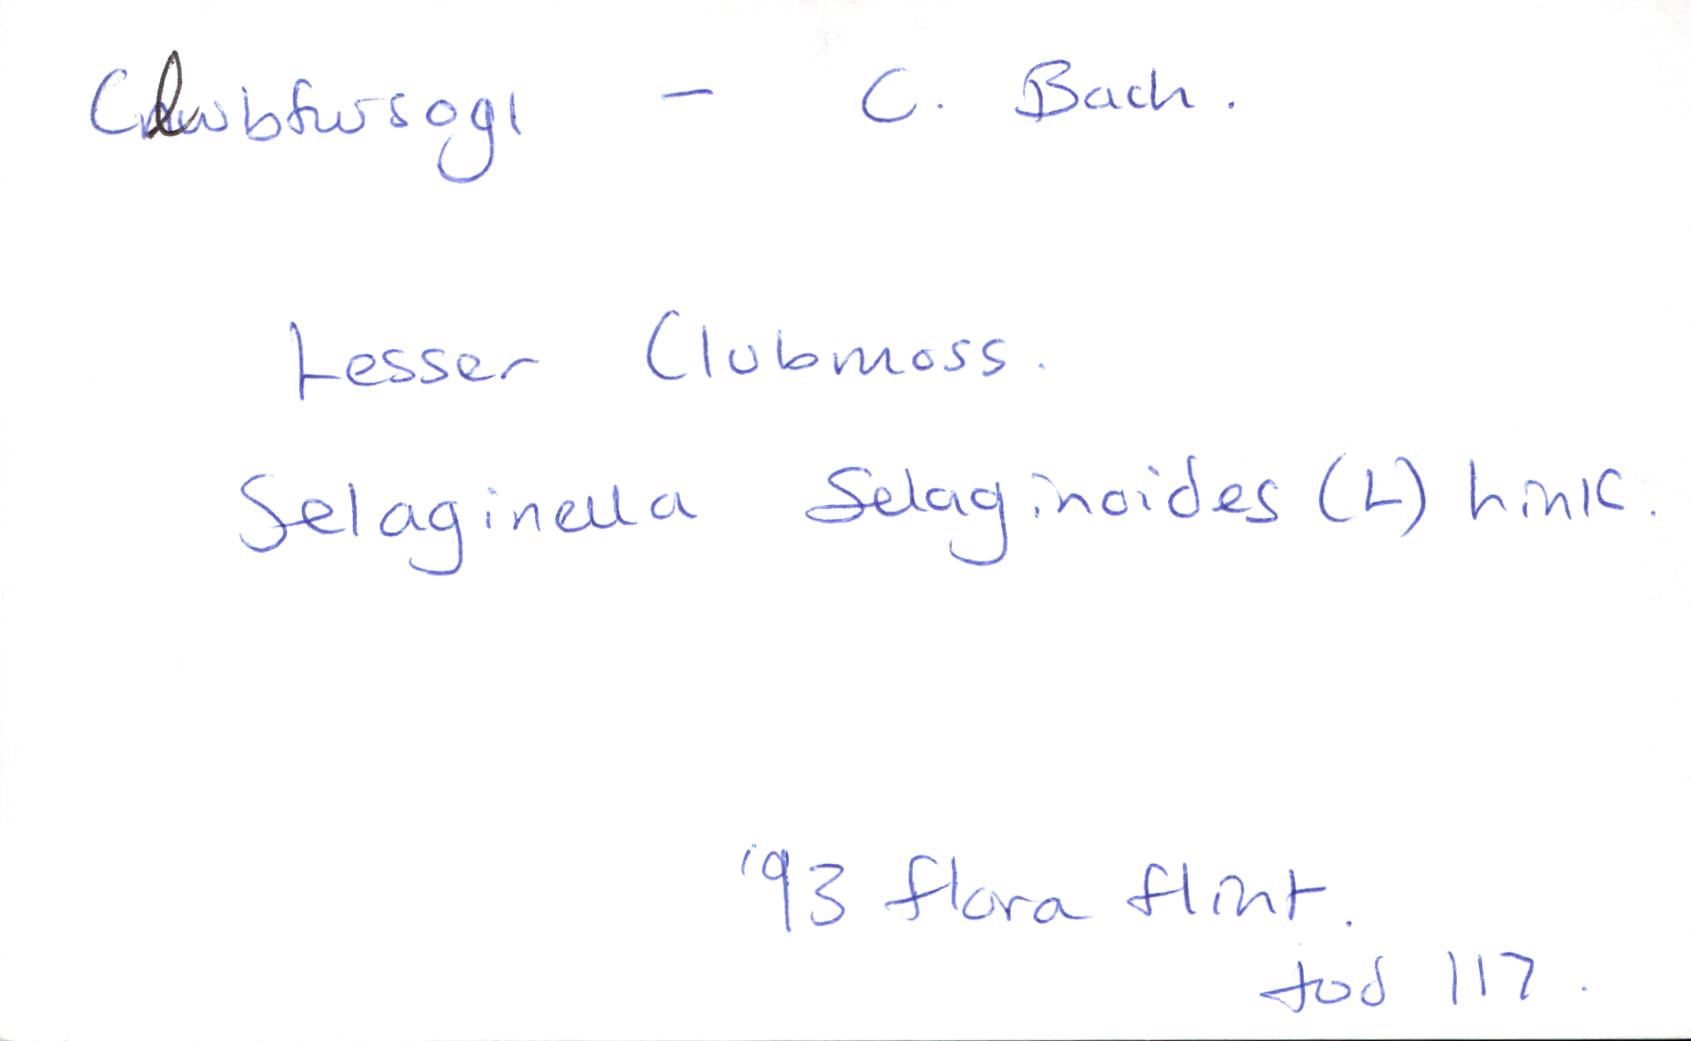 Clwbfwsogl - C. Bach.
Lesser Clubmoss.
Selaginella Selaginoides (L) Link.
'93 flora flint.
tod 117.